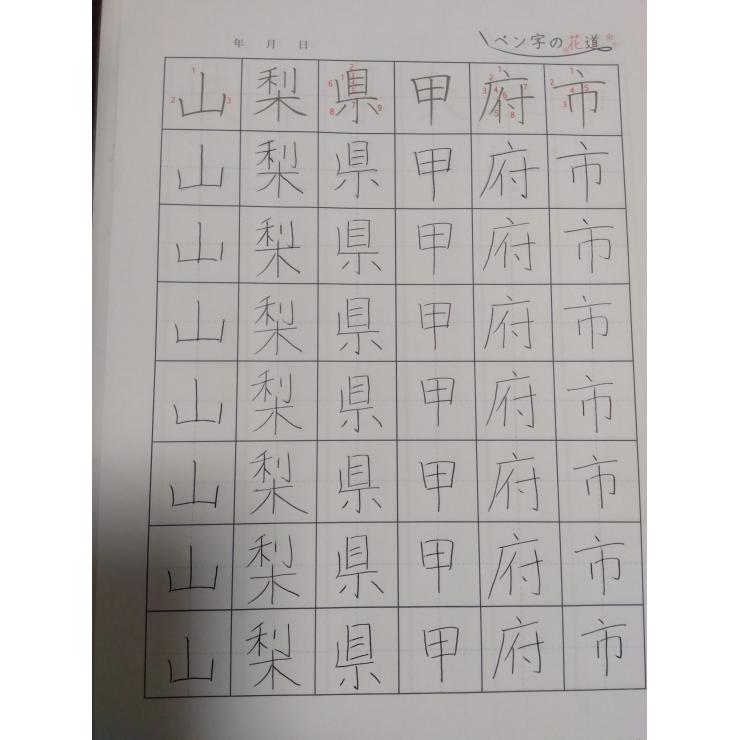 年 月 日 ペン字の花道
山梨県甲府市
山梨県甲府市
山梨県甲府市
山梨県甲府市
山梨県甲府市
山梨県甲府市
山梨県甲府市
山梨県甲府市